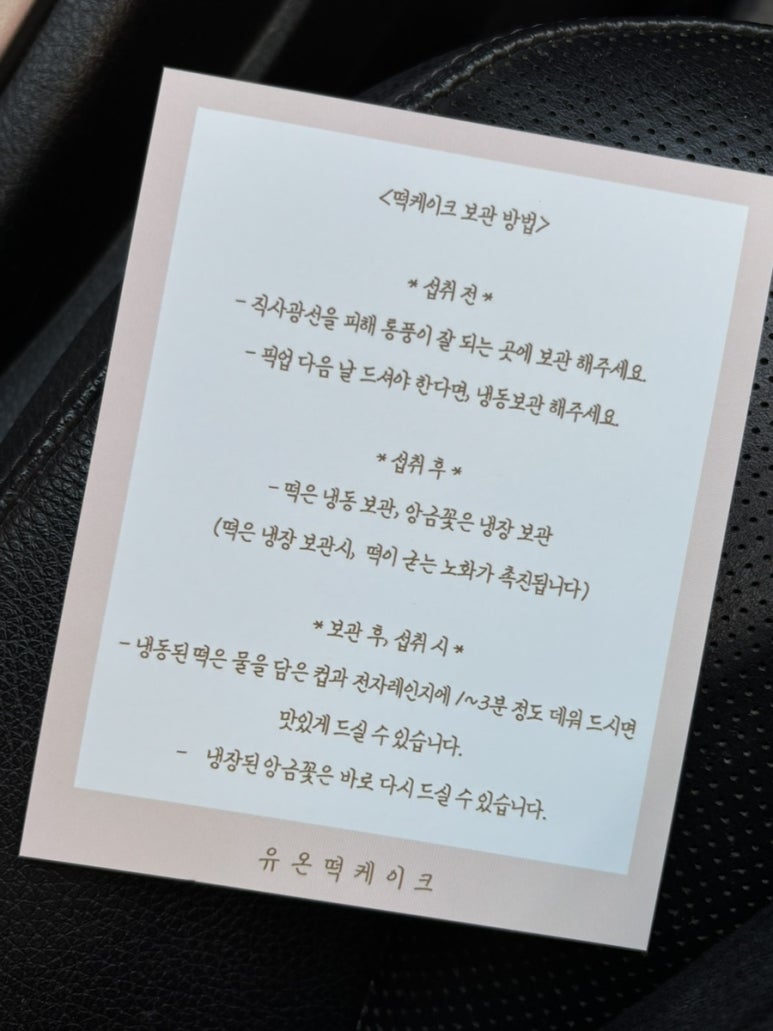 <떡케이크 보관 방법>
* 섭취 전 *
- 직사광선을 피해 통풍이 잘 되는 곳에 보관 해주세요.
- 픽업 다음 날 드셔야 한다면, 냉동보관 해주세요.
* 섭취 후 *
- 떡은 냉동 보관, 앙금꽃은 냉장 보관
(떡은 냉장 보관시, 떡이 굳는 노화가 촉진됩니다)
* 보관 후, 섭취 시 *
- 냉동된 떡은 물을 담은 컵과 전자레인지에 1~3분 정도 데워 드시면
맛있게 드실 수 있습니다.
- 냉장된 앙금꽃은 바로 다시 드실 수 있습니다.
유온떡케이크